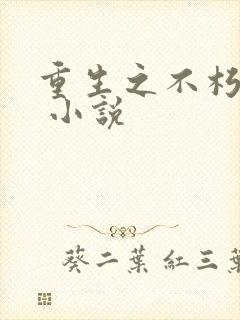 重生之不朽
小說
葵二葉紅三葉